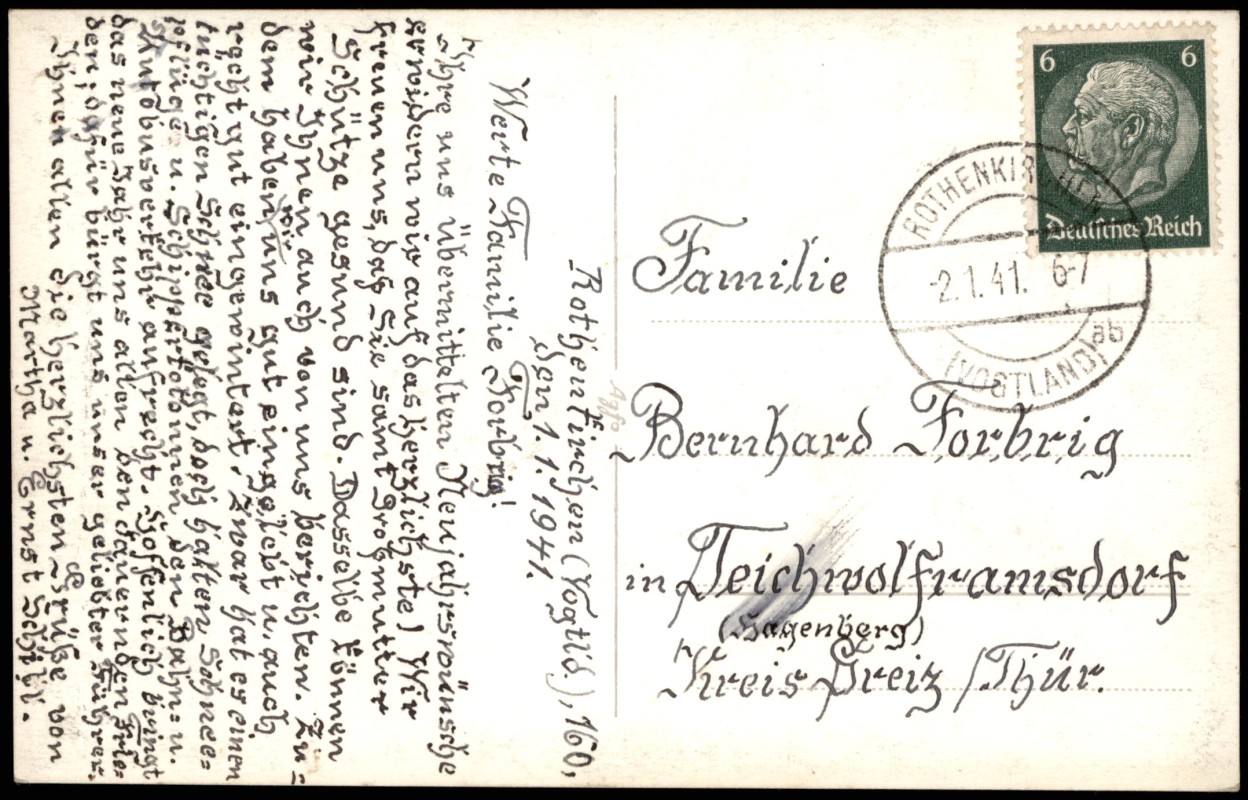 Rothenkirchen (Vogtld.), 160,
den 1.1.1941.
Werte Familie Forbrig!
Ihre uns übermittelten Neujahrswünsche
erwidern wir auf das herzlichste) Wir
freuen uns, das Sie samt Großmutter
Schütze gesund sind. Dasselbe können
wir Ihnen auch von uns berichten. Zu=
dem haben wir uns gut eingelebt u. auch
recht gut eingewintert. Zwar hat es einen
tüchtigen Schnee gelegt, doch halten Schnee=
pflüge u. Schipperkolonnen den Bahn= u.
Autobusverkehr aufrecht. Hoffentlich bringt
das neue Jahr uns allen den dauernden Frie=
den; dafür bürgt uns unser geliebter Führer.
Ihnen allen die herzlichsten Grüße von
Martha u. Ernst
Agfa
6 6
Deutsches Reich
ROTHENKIRCHEN
-2.1.41. 6-7
(VOGTLAND) ab
Familie
Bernhard Forbrig
in Teichwolframsdorf
(Hagenberg)
Kreis Greiz /Thür.